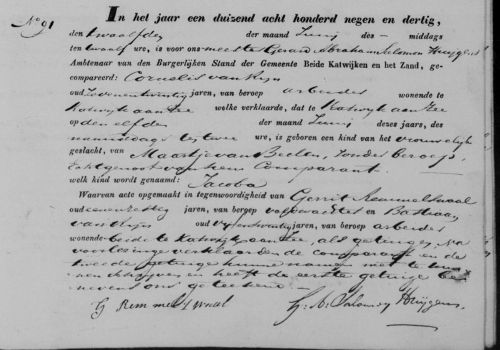 No 91
In het jaar een duizend acht honderd negen en dertig,
den twaalfden der maand Junij des middags
ten twaalf ure, is voor ons meester Gerard Abraham Salomon Huygens
Ambtenaar van den Burgerlijken Stand der Gemeente Beide Katwijken en het Zand, ge-
compareerd: Cornelis van Rijn
oud zevenentwintig jaren, van beroep arbeider wonende te
Katwijk aan Zee welke verklaarde, dat te Katwijk aan Zee
op den elfden der maand Junij dezes jaars, des
namiddags ten twee ure, is geboren een kind van het vrouwelijk
geslacht, van Maartje van Beelen, zonder beroep,
Echtgenoot van hem Comparant
welk kind wordt genaamd: Jacoba
Waarvan acte opgemaakt in tegenwoordigheid van Gerrit Remmelswaal
oud jaren, van beroep veldwachter en Bastiaan
van Rijn oud jaren, van beroep arbeider
wonende beide te Katwijk aan Zee, als getuigen, na
voorlezing verklaarden de comparant en de
tweede getuige hunne namen niet te kun-
nen schrijven en heeft de eerste getuige be-
nevens ons geteekend
G Remmelswaal G: A: Salomon Huygens